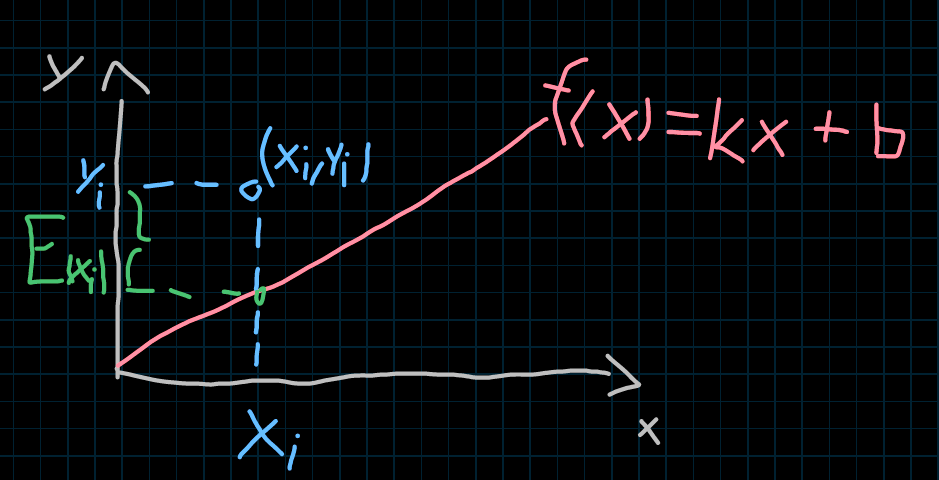 y
f(x) = kx + b
(xi, yi)
yi
E(xi)
xi
x